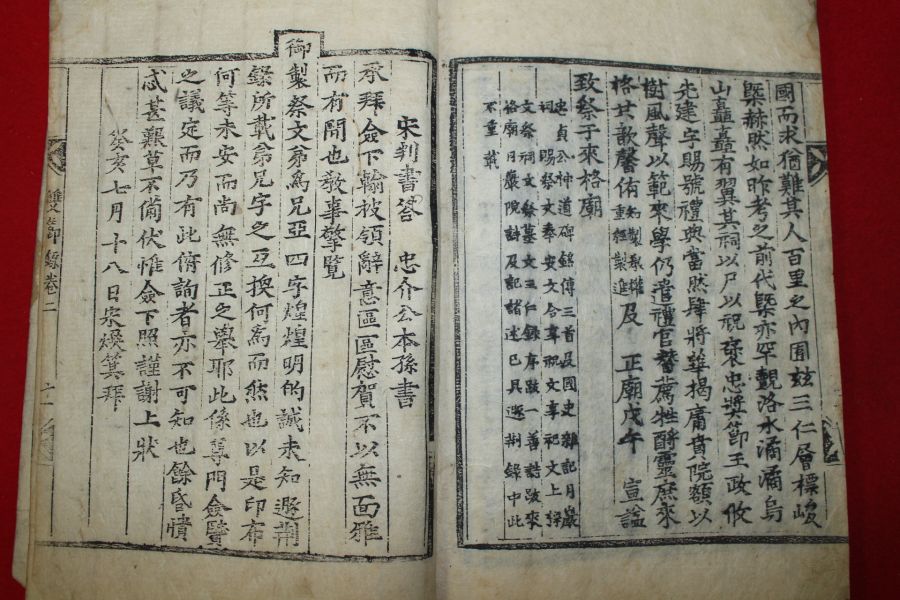 國而求猶難其人百里之內囿玆三仁層標峻
槩赫然如昨考之前代槩亦罕覯洛水潏潏烏
山矗矗有翼其祠以尸以祝褒忠奬節王政攸
先建字賜號禮典當然肆將華揭庸賁院額以
樹風聲以範來學仍遣禮官替薦牲酹靈庶來
格其歆馨侑知製敎權重經製進及 正廟戊午 宣諡
致祭于來格廟
忠貞公神道碑錦傳三首及國史 雜記月巖
祠 賜祭文奉安文合享祝文享祀文上樑
文祭祠文祭墓文三仁錄序跋一善誌跋來
格廟月巖院討及記諸述已具遯荆錄中此
不重載
宋判書答 忠介公本孫書
承拜僉下翰披領辭意區區慰賀不以無面雅
而有間也敬事擎覽
御製祭文弟爲兄亞四字煌煌明的誠未知遯荆
錄所載弟兄字之互換何爲而然也以是印布
何等未安而尚無修正之擧耶此係尊門僉賢
之議定而乃有此俯詢者亦不可知也餘昏憒
忒甚艱草不備伏惟僉下照謹謝上狀
癸亥七月十八日宋煥箕拜
雙節錄卷二